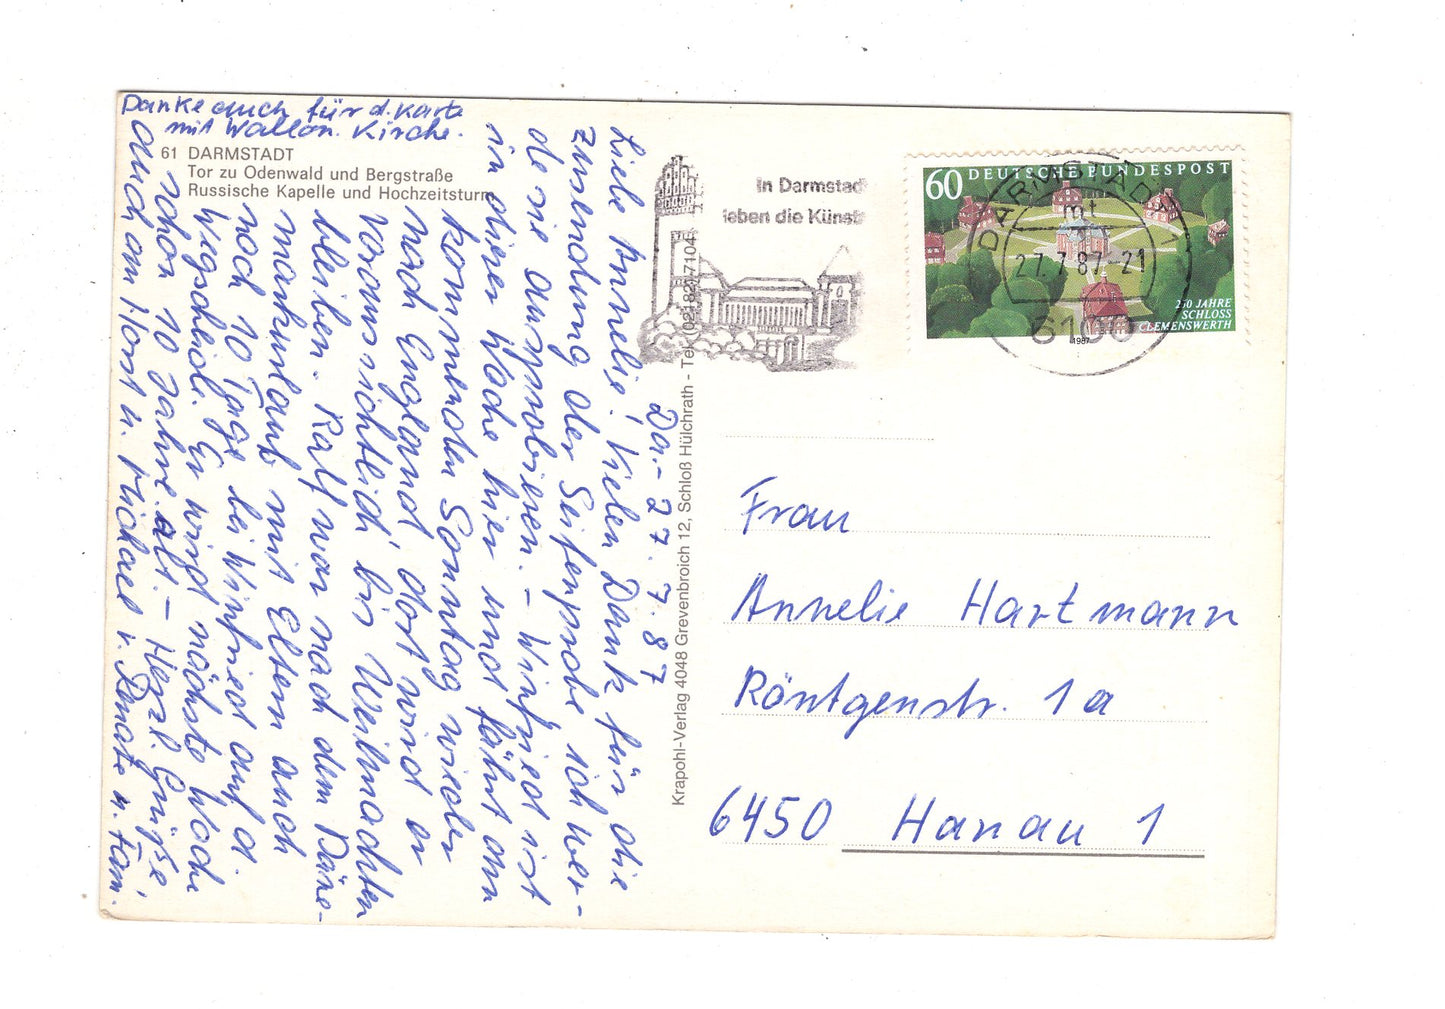 Danke auch für d. Karte
mit Wallon. Kirche.
61 DARMSTADT
Tor zu Odenwald und Bergstraße
Russische Kapelle und Hochzeitsturm
Da.- 27.7.87
Liebe Annelie! Vielen Dank für die
Zusendung der Seifenprobe ich wer-
de sie ausprobieren. – Winfried ist
in dieser Woche hier und fährt am
kommenden Sonntag wieder
nach England, dort wird er
voraussichtlich bis Weihnachten
bleiben. Ralf war nach dem Däne-
markurlaub mit Eltern auch
noch 10 Tage bei Winfried auf d.
Wegscheide. Er wird nächste Woche
schon 10 Jahre alt. – Herzl. Grüße
auch am Horst u. Michael v. Renate u. Fam.
Krapohl-Verlag 4048 Grevenbroich 12, Schloß Hülchrath - Tel. (02182) 7104
In Darmstad
leben die Künst
DARMSTADT 1
mt
27.7.87-21
6100
60 DEUTSCHE BUNDESPOST
250 JAHRE
SCHLOSS
CLEMENSWERTH
1987
Frau
Annelie Hartmann
Röntgenstr. 1a
6450 Hanau 1